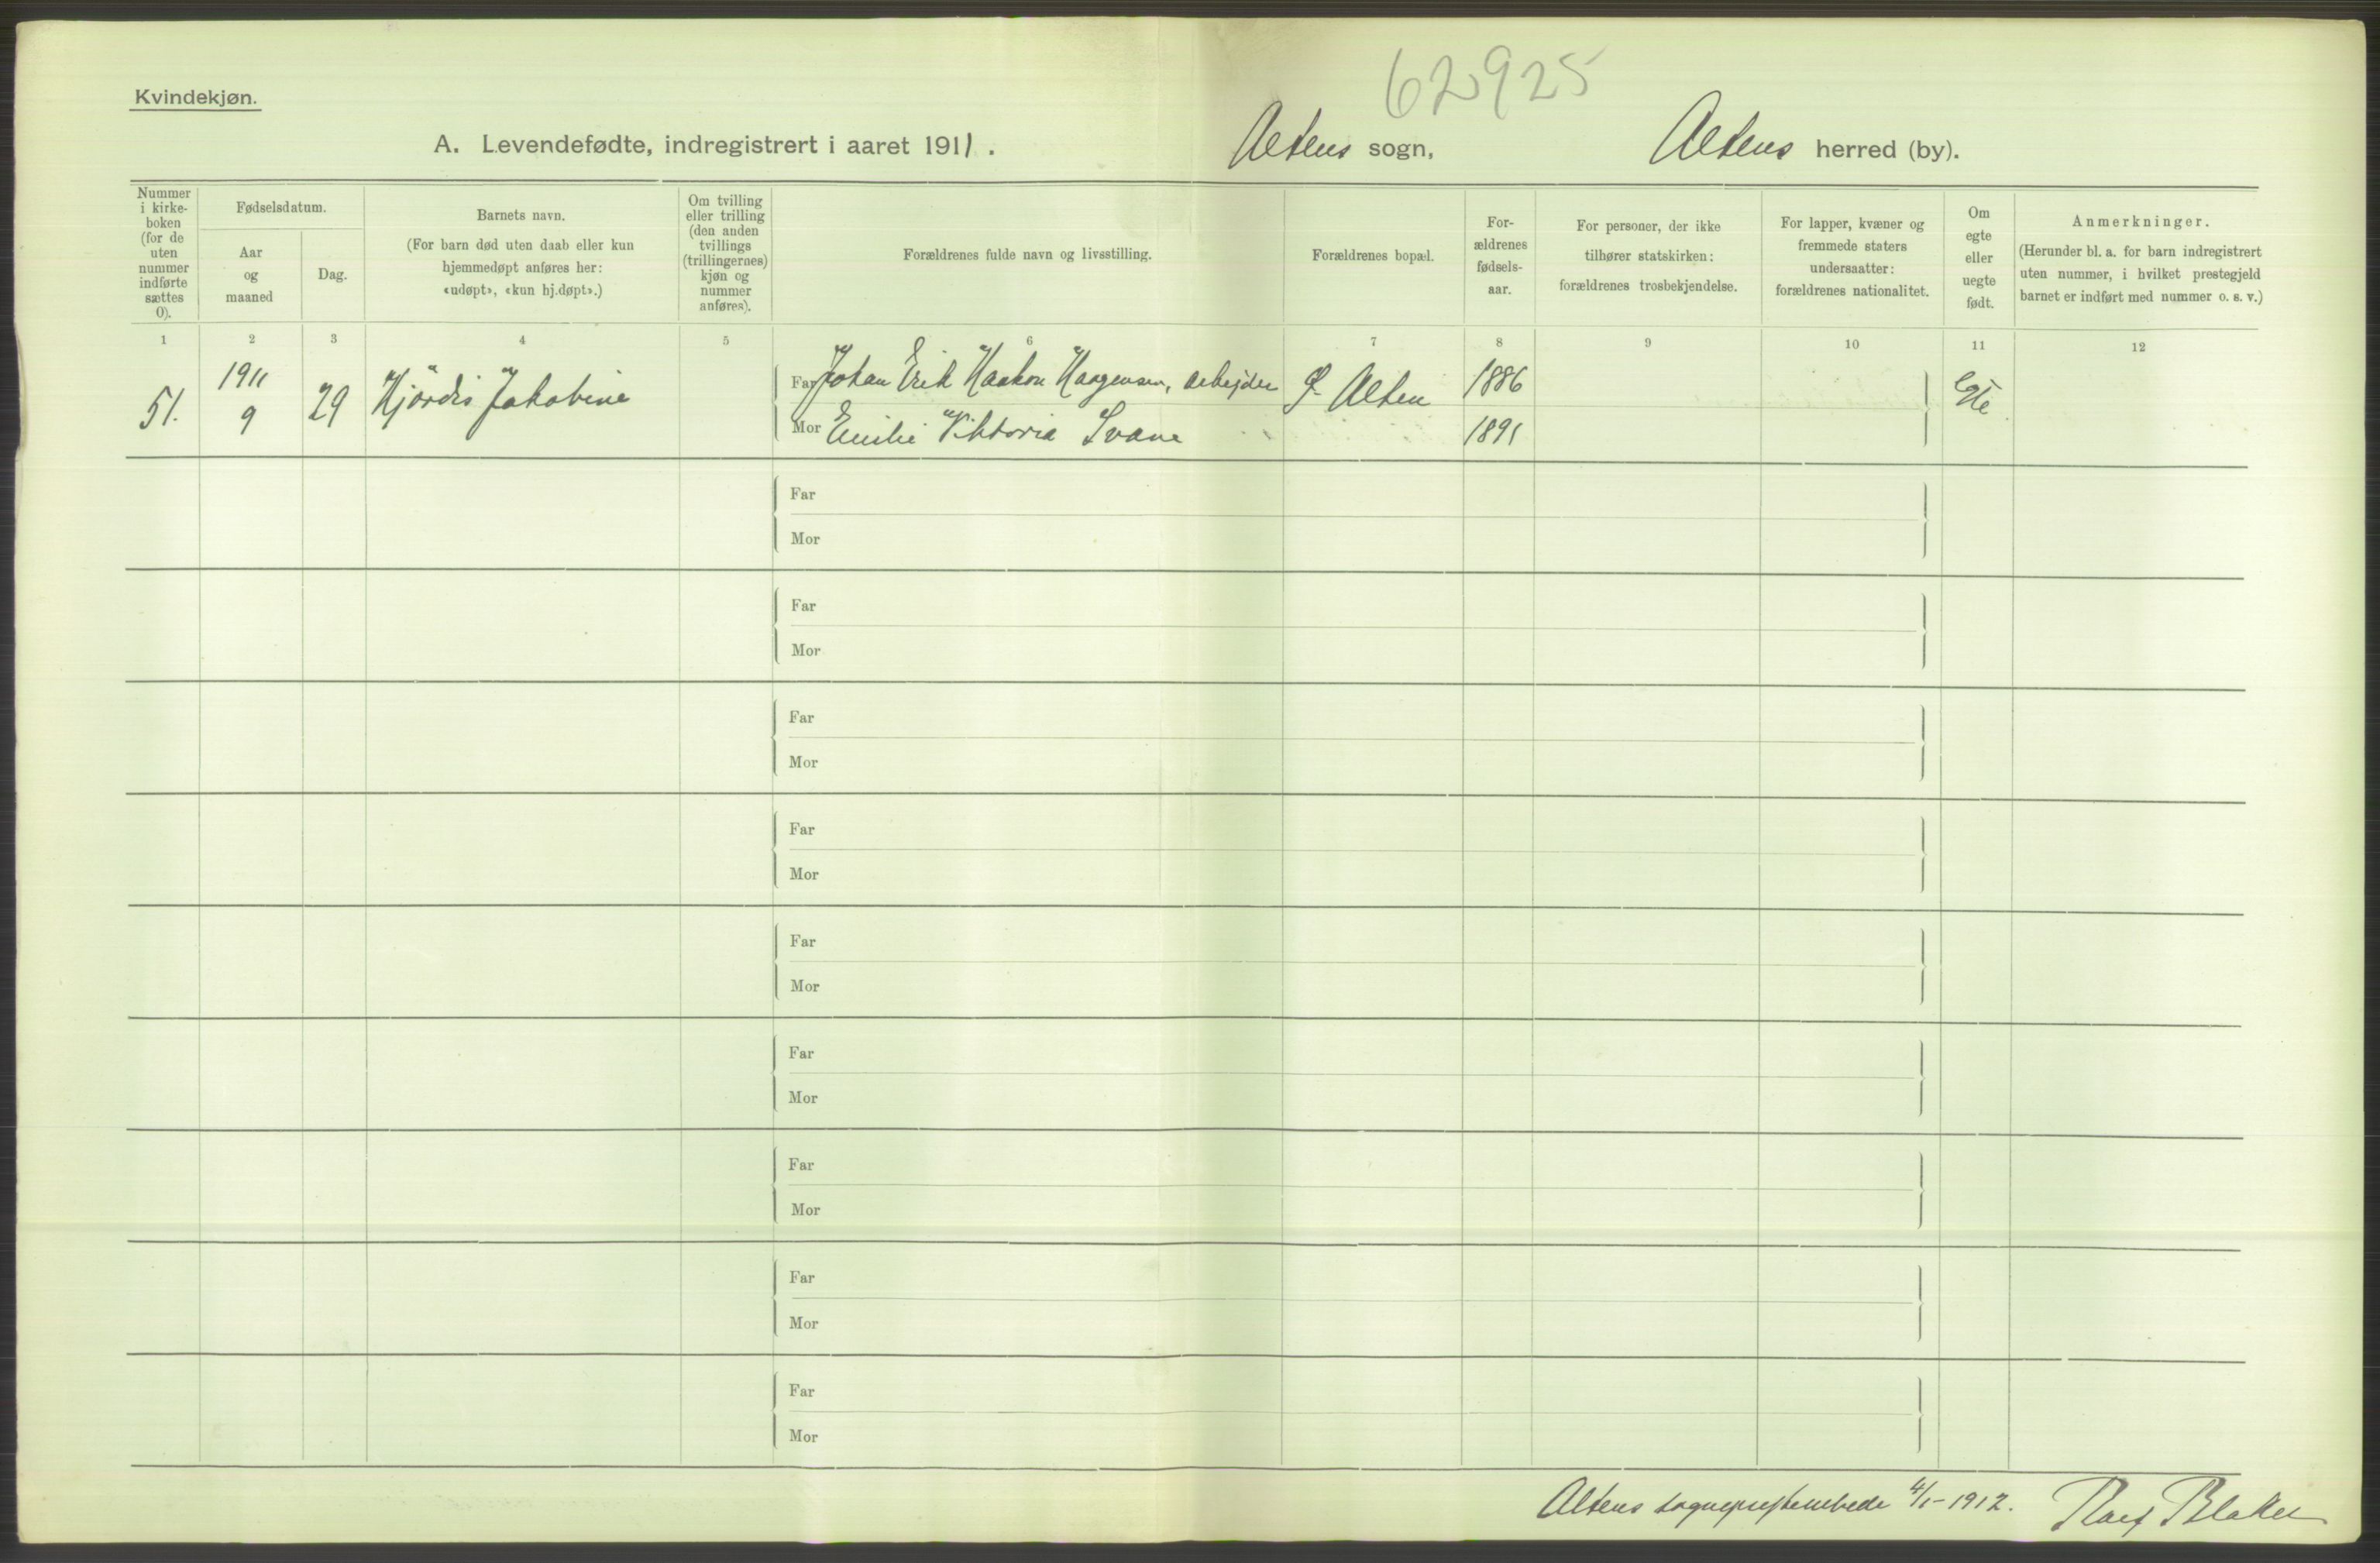 62925
Kvindekjøn.
A. Levendefødte, indregistrert i aaret 1911. Altens sogn, Altens herred (by).
Nummer i kirke-boken (for de uten nummer indførte sættes 0).
Fødselsdatum.
Aar og maaned
Dag.
Barnets navn.
(For barn død uten daab eller kun hjemmedøpt anføres her: «udøpt», «kun hj.døpt».)
Om tvilling eller trilling (den anden tvillings (trillingernes) kjøn og nummer anføres).
Forældrenes fulde navn og livsstilling.
Forældrenes bopæl.
For-ældrenes fødsels-aar.
For personer, der ikke tilhører statskirken: forældrenes trosbekjendelse.
For lapper, kvæner og fremmede staters undersaatter: forældrenes nationalitet.
Om egte eller uegte født.
Anmerkninger.
(Herunder bl. a. for barn indregistrert uten nummer, i hvilket prestegjeld barnet er indført med nummer o. s. v.)
1 2 3 4 5 6 7 8 9 10 11 12
51. 1911 9 29 Hjördis Jakobine
Far Johan Erik Haakon Haagensen, arbejder Ø. Alten 1886 Egte
Mor Emilie Viktoria Svane 1891
Far
Mor
Far
Mor
Far
Mor
Far
Mor
Far
Mor
Far
Mor
Far
Mor
Far
Mor
Far
Mor
Altens sogneprestembede 4/1-1912. Blaker